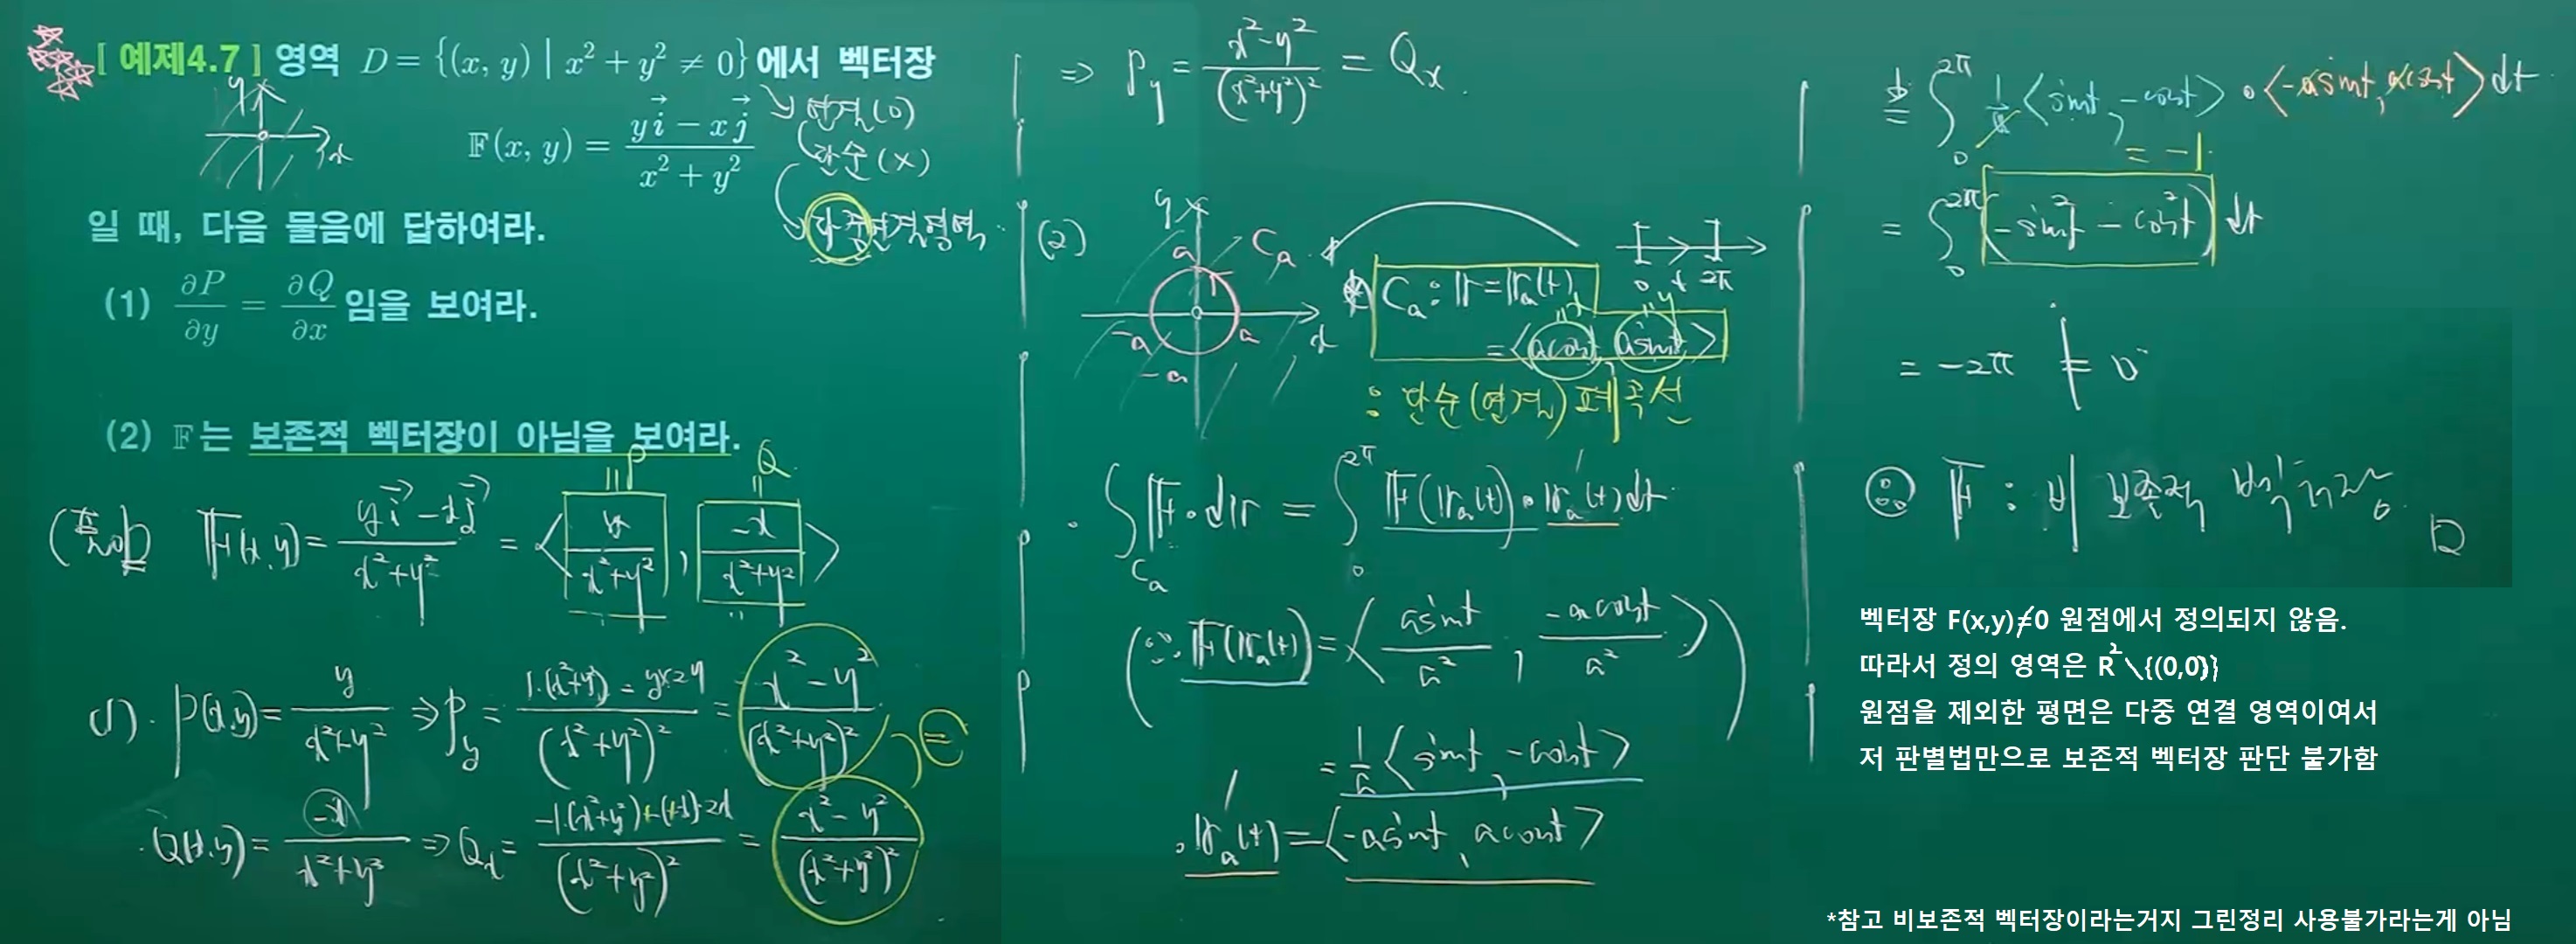 [ 예제4.7 ] 영역 D = {(x, y) | x² + y² ≠ 0}에서 벡터장
y
x
F(x, y) = (y i⃗ − x j⃗) / (x² + y²)
연결(O)
단순(X)
다중연결영역.
일 때, 다음 물음에 답하여라.
(1) ∂P/∂y = ∂Q/∂x 임을 보여라.
(2) F는 보존적 벡터장이 아님을 보여라.
P
Q
(풀이) F(x,y) = (y i⃗ − x j⃗)/(x²+y²) = < y/(x²+y²) , −x/(x²+y²) >
(1). P(x,y) = y/(x²+y²) ⇒ P_y = (1·(x²+y²) − y×2y)/(x²+y²)² = (x²−y²)/(x²+y²)²
=
Q(x,y) = −x/(x²+y²) ⇒ Q_x = (−1·(x²+y²)+(+x)·2x)/(x²+y²)² = (x²−y²)/(x²+y²)²
⇒ P_y = (x²−y²)/(x²+y²)² = Q_x.
(2)
y
a
C_a.
−a
a
x
−a
C_a : r = r_a(t)
0 t 2π
x
y
= < a cost, a sint >
: 단순(연결) 폐곡선
· ∫_{C_a} F·dr = ∫₀^{2π} F(r_a(t))·r_a'(t) dt
(∵ F(r_a(t)) = < a sint/a² , −a cost/a² >)
= 1/a < sint, −cost >
· r_a'(t) = < −a sint, a cost >
= ∫₀^{2π} 1/a < sint, −cost > · < −a sint, a cost > dt
= −1.
= ∫₀^{2π} (−sin²t − cos²t) dt
= −2π ≠ 0
∴ F : 비보존적 벡터장.
벡터장 F(x,y)≠0 원점에서 정의되지 않음.
따라서 정의 영역은 R²∖{(0,0)}
원점을 제외한 평면은 다중 연결 영역이여서
저 판별법만으로 보존적 벡터장 판단 불가함
*참고 비보존적 벡터장이라는거지 그린정리 사용불가라는게 아님